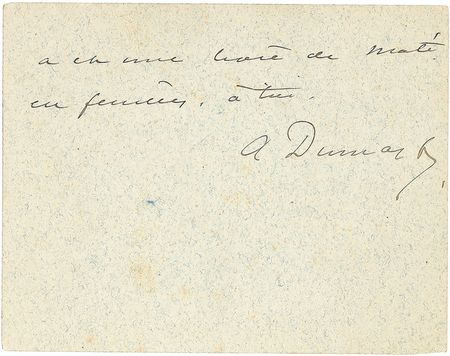 a eu une boîte de maté
en feuilles. à toi.
A Dumas f